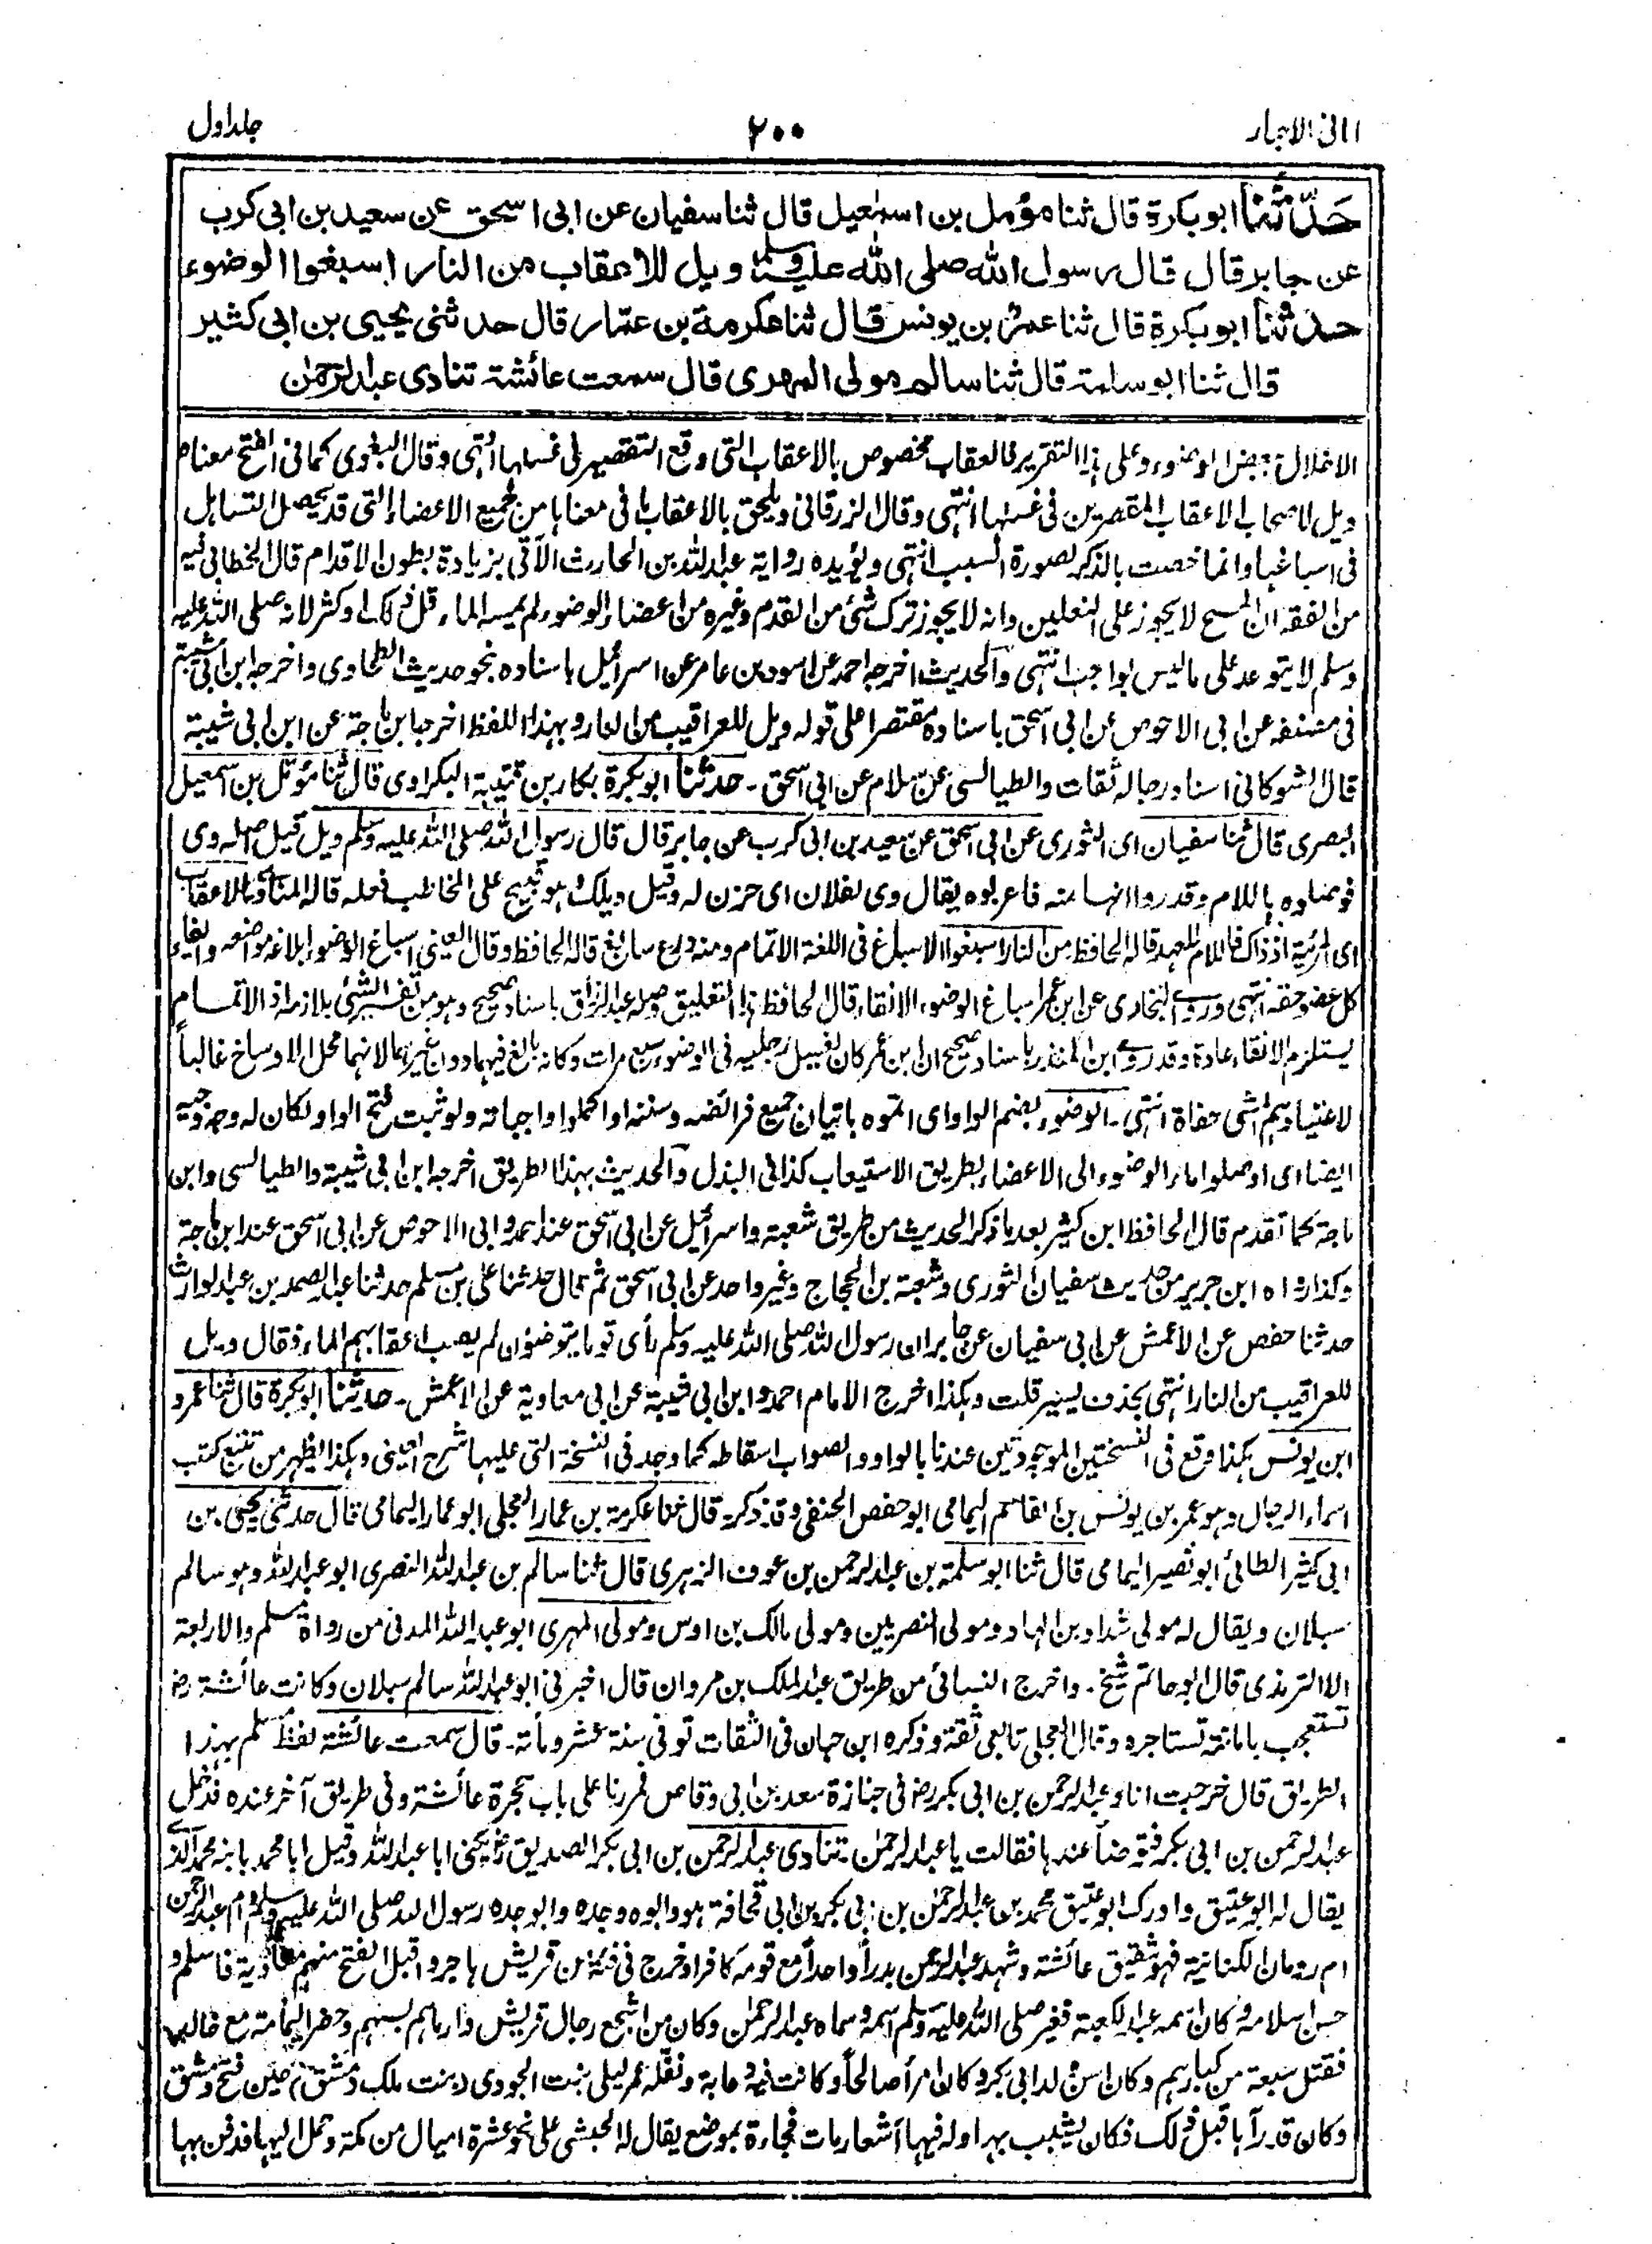 امانی الاحبار
۲۰۰
جلد اول
حدثنا ابو بکرة قال ثنا مؤمل بن اسمٰعیل قال ثنا سفیان عن ابی اسحق عن سعید بن ابی کرب
عن جابر قال قال رسول الله صلی الله علیه وسلم ویل للاعقاب من النار اسبغوا الوضوء
حدثنا ابو بکرة قال ثنا عمر بن یونس قال ثنا عکرمة بن عمّار قال حدثنی یحیی بن ابی کثیر
قال ثنا ابو سلمة قال ثنا سالم مولی المهری قال سمعت عائشة تنادی عبد الرحمٰن
الاخلال ببعض الوضوء وعلی هذا التقریر فالعقاب مخصوص بالاعقاب التی وقع التقصیر فی غسلها انتهی وقال البغوی کما فی الفتح معناه
ویل لاصحاب الاعقاب المقصرین فی غسلها انتهی وقال الزرقانی ویلحق بالاعقاب ما فی معناها من جمیع الاعضاء التی قد یحصل التساهل
فی اسباغها وانما خصت بالذکر لصورة السبب انتهی ویؤیده روایة عبد الله بن الحارث الآتی بزیادة بطون الاقدام قال الخطابی فیه
من الفقه ان المسح لا یجوز علی النعلین وانه لا یجوز ترک شئ من القدم وغیره من اعضاء الوضوء لم یمسه الماء قل ذلک او کثر لانه صلی الله علیه
وسلم لا یتوعد علی ما لیس بواجب انتهی والحدیث اخرجه احمد عن اسود بن عامر عن اسرائیل باسناده نحو حدیث الطحاوی واخرجه ابن ابی شیبة
فی مصنفه عن ابی الاحوص عن ابی اسحق باسناده مقتصرا علی قوله ویل للعراقیب من النار وبهذا اللفظ اخرجه ابن ماجة عن ابن ابی شیبة
قال الشوکانی اسناد رجاله ثقات والطیالسی عن سلام عن ابی اسحق ۔ حدثنا ابو بکرة بکار بن قتیبة البکراوی قال ثنا مؤمل بن اسمعیل
البصری قال ثنا سفیان ای الثوری عن ابی اسحق عن سعید بن ابی کرب عن جابر قال قال رسول الله صلی الله علیه وسلم ویل قیل اصله وی
فوصلوه باللام وقدروا انها منه فاعربوه یقال وی لفلان ای حزن له وقیل ویلک هو تقبیح علی المخاطب فعله قاله المناوی للاعقاب
ای المرئیة اذ ذاک فاللام للعهد قاله الحافظ من النار اسبغوا الاسباغ فی اللغة الاتمام ومنه درع سابغ قاله الحافظ وقال العینی اسباغ الوضوء ابلاغه مواضعه وایفاء
کل عضو حقه انتهی وروی البخاری عن ابن عمر اسباغ الوضوء الانقاء قال الحافظ هذا التعلیق وصله عبد الرزاق باسناد صحیح وهو من تفسیر الشئ بلازمه اذ الاتمام
یستلزم الانقاء عادة وقد روی ابن المنذر باسناد صحیح ان ابن عمر کان یغسل رجلیه فی الوضوء سبع مرات وکانه بالغ فیهما دون غیرهما لانهما محل الاوساخ غالباً
لاعتیادهم المشی حفاة انتهی ۔ الوضوء بضم الواو ای اتموه باتیان جمیع فرائضه وسننه او اکملوا واجباته ولو ثبت فتح الواو لکان له وجه وجیه
ایضا ای اوصلوا ماء الوضوء الی الاعضاء بطریق الاستیعاب کذا فی البذل والحدیث بهذا الطریق اخرجه ابن ابی شیبة والطیالسی وابن
ماجة کما تقدم قال الحافظ ابن کثیر بعد ما ذکر الحدیث من طریق شعبة واسرائیل عن ابی اسحق عند احمد وابی الاحوص عن ابی اسحق عند ابن ماجة
وکذا رواه ابن جریر من حدیث سفیان الثوری وشعبة بن الحجاج وغیر واحد عن ابی اسحق ثم قال حدثنا علی بن مسلم حدثنا عبد الصمد بن عبد الوارث
حدثنا حفص عن الاعمش عن ابی سفیان عن جابر ان رسول الله صلی الله علیه وسلم رأی قوما یتوضؤن لم یصب اعقابهم الماء فقال ویل
للعراقیب من النار انتهی بحذف یسیر قلت وهکذا اخرج الامام احمد وابن ابی شیبة عن ابی معاویة عن الاعمش ۔ حدثنا ابو بکرة قال ثنا عمرو
ابن یونس هکذا وقع فی النسختین الموجودتین عندنا بالواو والصواب اسقاطه کما وجد فی النسخة التی علیها شرح العینی وهکذا یظهر من تتبع کتب
اسماء الرجال وهو عمر بن یونس بن القاسم الیمامی ابو حفص الحنفی وقد ذکر قال ثنا عکرمة بن عمار العجلی ابو عمار الیمامی قال حدثنی یحیی بن
ابی کثیر الطائی ابو نصیر الیمامی قال ثنا ابو سلمة بن عبد الرحمن بن عوف الزهری قال ثنا سالم بن عبد الله النصری ابو عبد الله وهو سالم
سبلان ویقال له مولی شداد بن الهاد ومولی النصریین ومولی مالک بن اوس ومولی المهری ابو عبد الله المدنی من رواة مسلم والاربعة
الا الترمذی قال ابو حاتم شیخ ۔ واخرج النسائی من طریق عبد الملک بن مروان قال اخبرنی ابو عبد الله سالم سبلان وکانت عائشة رض
تستعجب بامانته تستاجره وقال العجلی تابعی ثقة وذکره ابن حبان فی الثقات توفی سنة عشر ومأة ۔ قال سمعت عائشة لفظ مسلم بهذا
الطریق قال خرجت انا وعبد الرحمن بن ابی بکر رض فی جنازة سعد بن ابی وقاص فمررنا علی باب حجرة عائشة وفی طریق آخر عنده فدخل
عبد الرحمن بن ابی بکر فتوضأ عندها فقالت یا عبد الرحمٰن ۔ تنادی عبد الرحمن بن ابی بکر الصدیق رض یکنی ابا عبد الله وقیل ابا محمد بابنه محمد الذی
یقال له ابو عتیق وادرک ابو عتیق محمد بن عبد الرحمٰن بن ابی بکر بن ابی قحافة هو وابوه وجده وابو جده رسول الله صلی الله علیه وسلم وام عبد الرحمن
ام رومان الکنانیة فهو شقیق عائشة وشهد عبد الرحمن بدراً واحداً مع قومه کافرا وخرج فی فتیة من قریش هاجروا قبل الفتح منهم معاویة فاسلم و
حسن اسلامه وکان اسمه عبد الکعبة فغیر صلی الله علیه وسلم اسمه وسماه عبد الرحمٰن وکان من اشجع رجال قریش وارماهم بسهم وحضر الیمامة مع خالد
فقتل سبعة من کبارهم وکان اسن ولد ابی بکر وکان امرأ صالحاً وکانت فیه دعابة ونفله عمر لیلی بنت الجودی بنت ملک دمشق حین فتح دمشق
وکان قد رآها قبل ذلک فکان یشبب بها وله فیها اشعار مات فجاءة بموضع یقال له الحبشی علی نحو عشرة امیال من مکة وحمل الیها فدفن بها